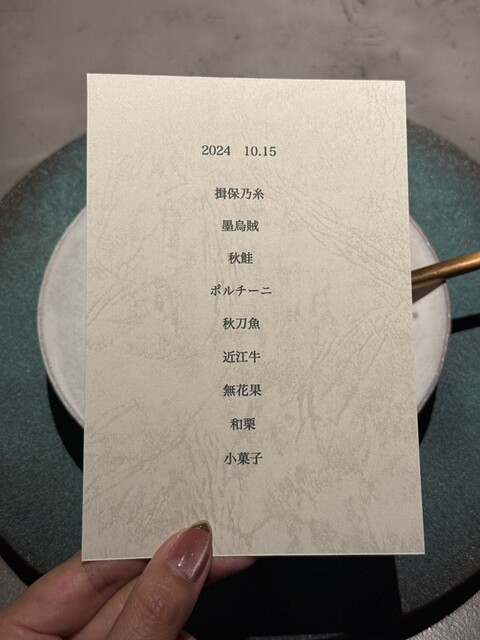 2024 10.15
揖保乃糸
墨烏賊
秋鮭
ポルチーニ
秋刀魚
近江牛
無花果
和栗
小菓子